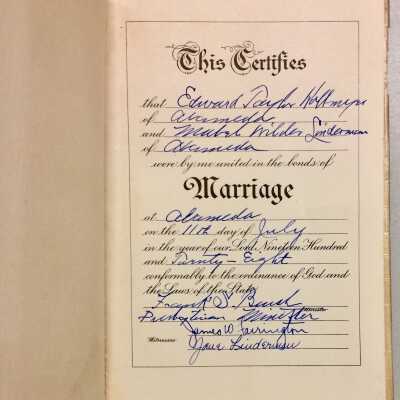 This Certifies
that Edward Taylor
of Alameda
and Mabel Wilder Linderman
of Alameda
were by me united in the bonds of
Marriage
at Alameda
on the 11th day of July
in the year of our Lord Nineteen Hundred
and Twenty-Eight
conformably to the ordinance of God and
the Laws of the State
Frank S.
Presbyterian Minister
James W. Farrington
Witnesses Linderman